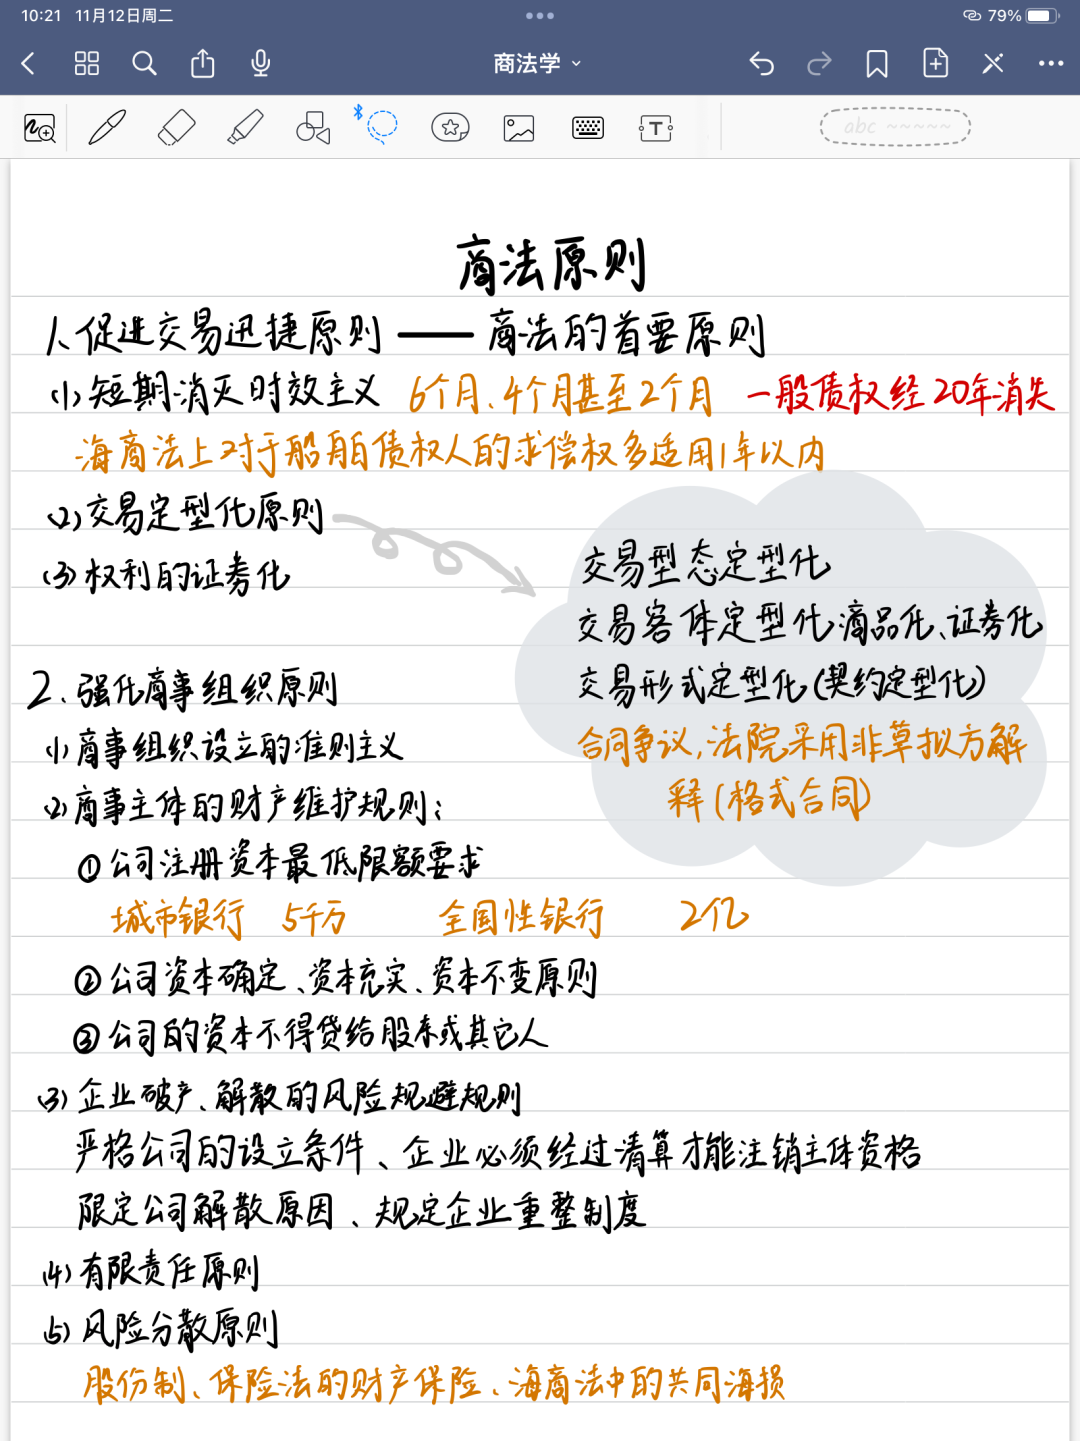 10:21 11月12日周二
79%
商法学
abc ~~~~~
商法原则
1、促进交易迅捷原则 —— 商法的首要原则
(1)短期消灭时效主义 6个月、4个月甚至2个月 一般债权经20年消失
海商法上对于船舶债权人的求偿权多适用1年以内
(2)交易定型化原则
交易型态定型化
(3)权利的证券化
交易客体定型化 商品化、证券化
交易形式定型化(契约定型化)
合同争议,法院采用非草拟方解
释(格式合同)
2、强化商事组织原则
(1)商事组织设立的准则主义
(2)商事主体的财产维护规则:
①公司注册资本最低限额要求
城市银行 5千万 全国性银行 2亿
②公司资本确定、资本充实、资本不变原则
③公司的资本不得贷给股东或其它人
(3)企业破产、解散的风险规避规则
严格公司的设立条件、企业必须经过清算才能注销主体资格
限定公司解散原因、规定企业重整制度
(4)有限责任原则
(5)风险分散原则
股份制、保险法的财产保险、海商法中的共同海损